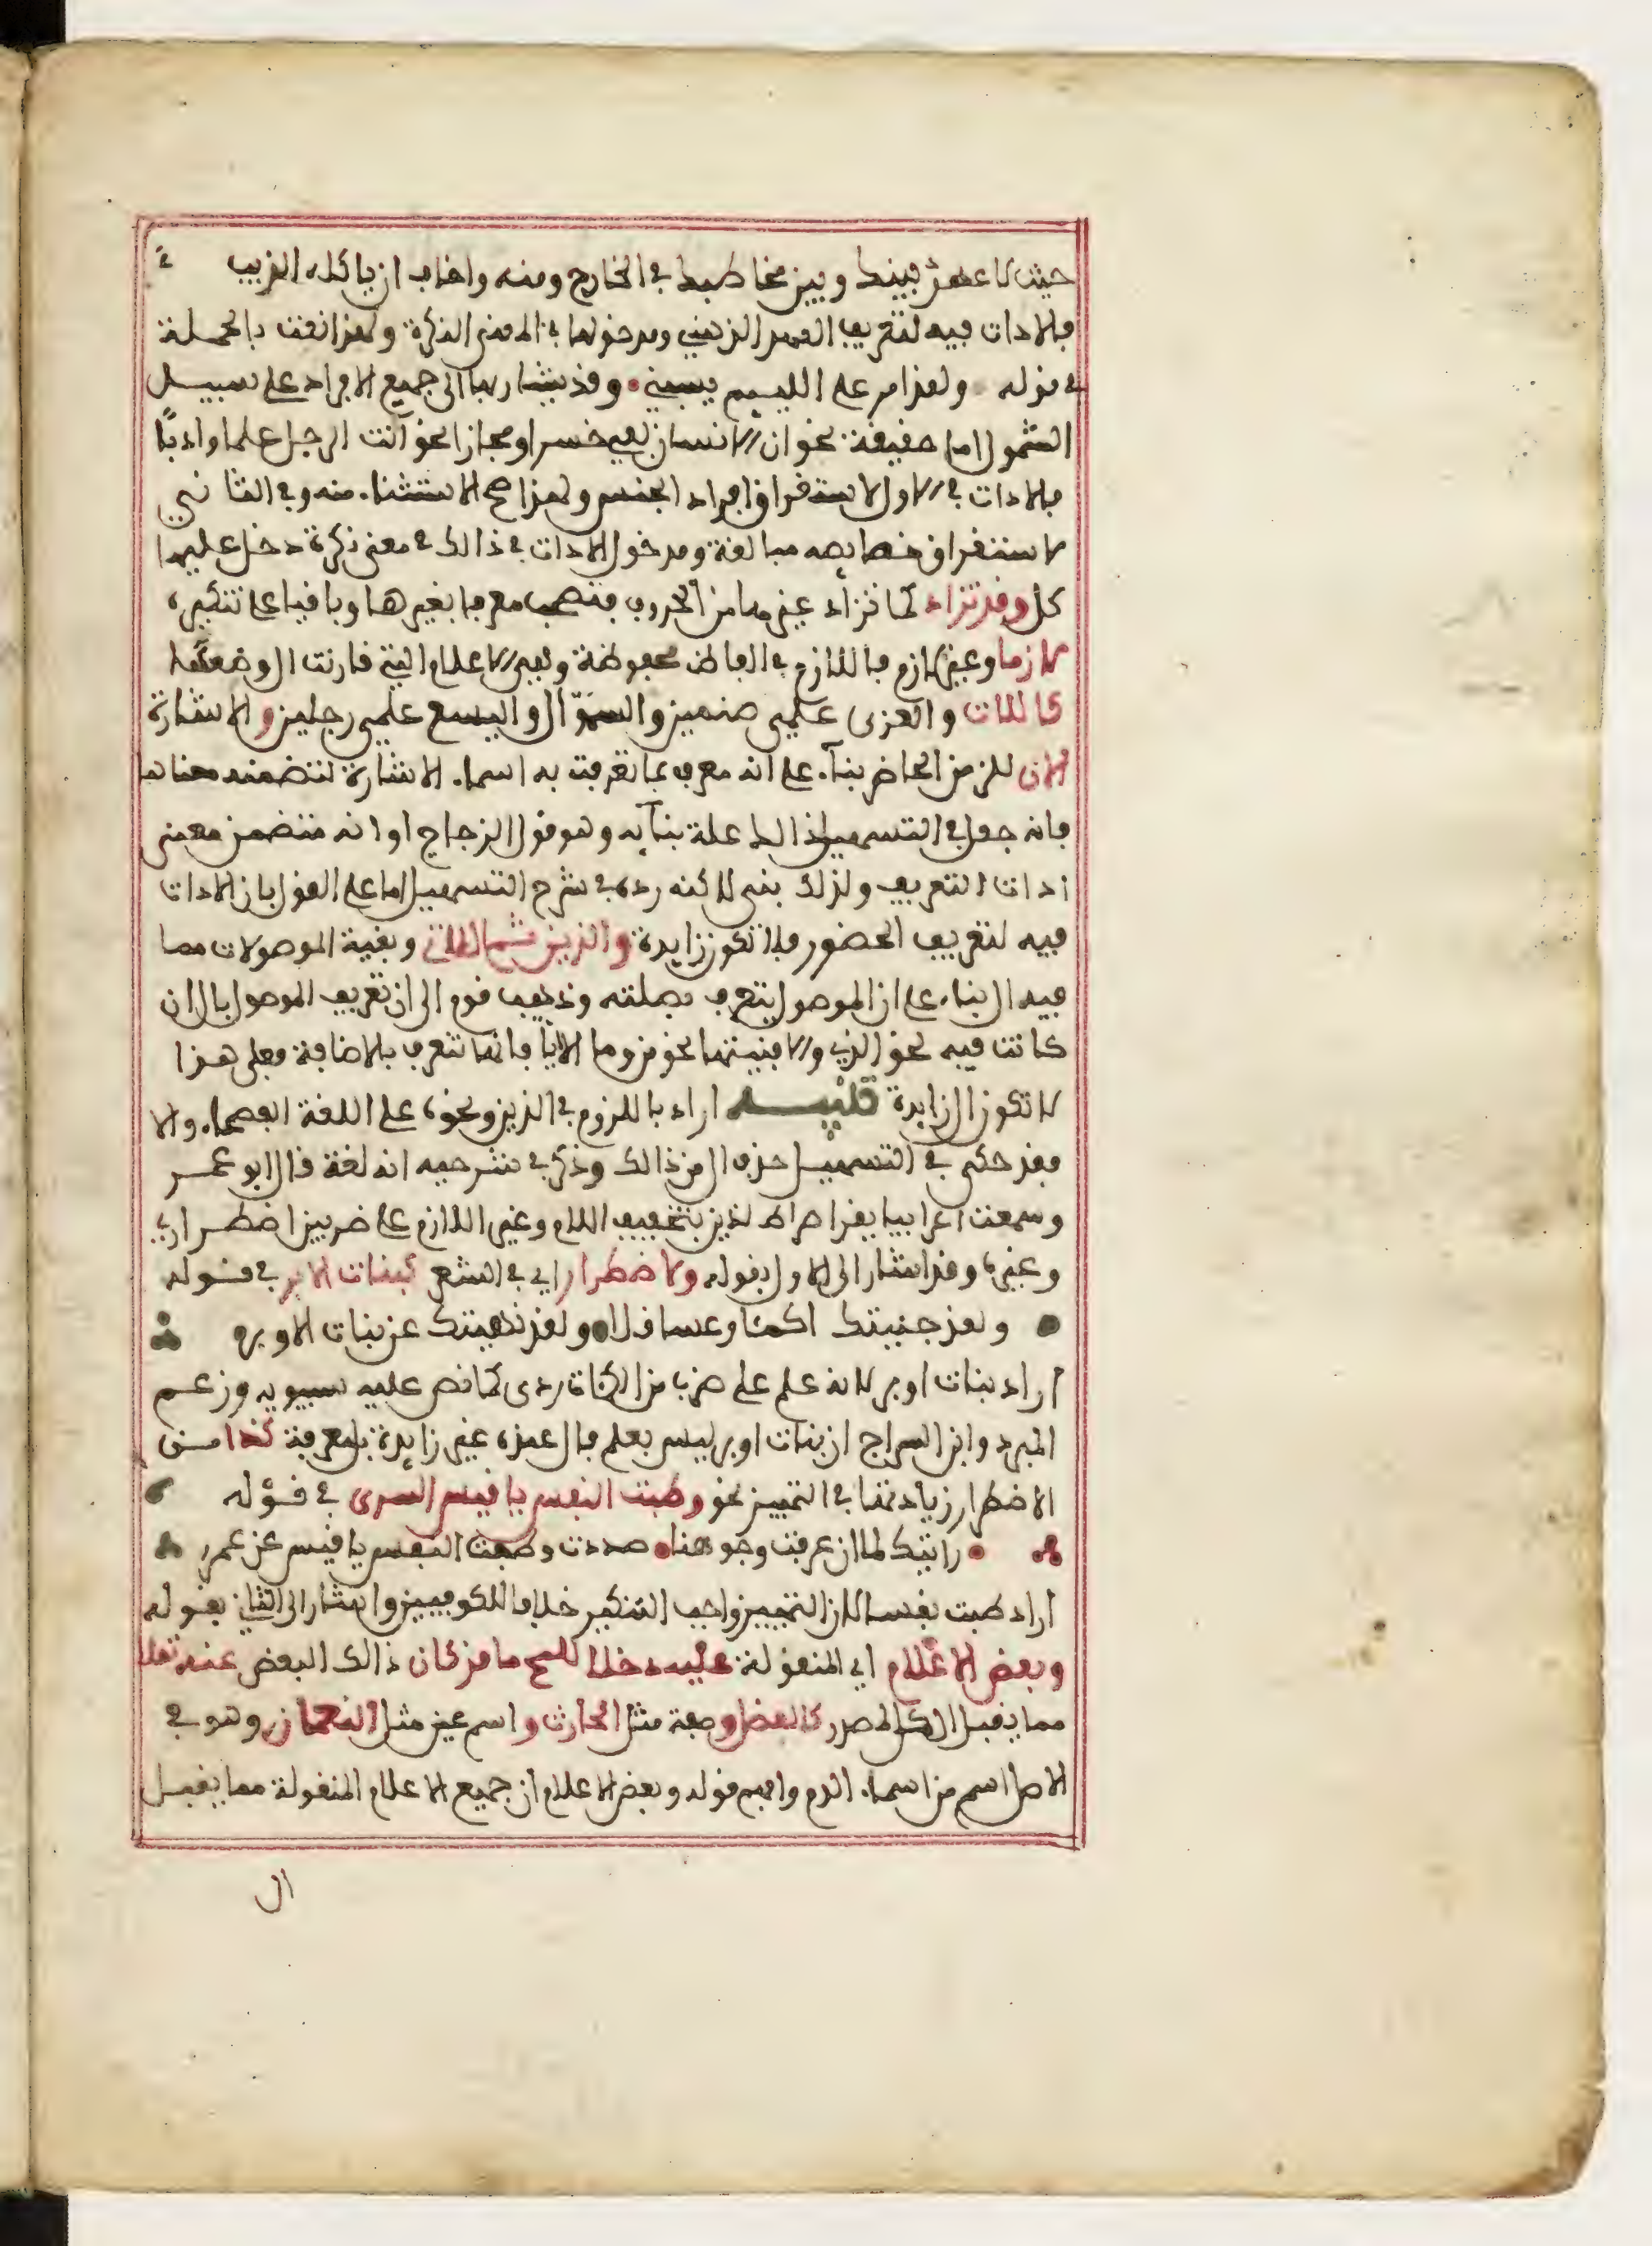 حيث لا عهد بينك وبين مخاطبك في الخارج ومنه واخاف ان ياكله الذيب
فالادات فيه لتعريف العهد الذهني ومدخولها في المعنى النكرة ولهذا نعت بالجملة
في قوله ولقد امر على الليىم يسبني وقد يشار بها الى جميع الافراد على سبيل
الشمول اما حقيقة نحو ان الانسان لفي خسر او مجازا نحو انت الرجل علما وادبا
فالادات في الاول لاستغراق افراد الجنس ولهذا صح الاستثناء منه وفي الثاني
لاستغراق خصايصه مبالغة ومدخول الادات في ذالك في معنى نكرة دخل عليها
كل وقد تزاد كما تزاد غيرها من الحروف فتصحب معرفا بغيرها وباقيا على تنكيره
لازما وغير لازم فاللازم في الفاظ محفوظة وهي الاعلام التي قارنت ال وضعها
كاللات والعزى علمي صنمين والسموّال واليسع علمي رجلين والاشارة
الان للزمن الحاضر بناء على انه معرف بما تعرفت به اسماء الاشارة لتضمنه معناها
فانه جعل في التسهيل ذالك علة بنايه وهو قول الزجاج او انه متضمن معنى
ادات التعريف ولذلك بني لاكنه رده في شرح التسهيل اما على القول بان الادات
فيه لتعريف الحضور فلا تكون زايدة والذين ثم اللات وبقية الموصولات مما
فيه ال بناء على ان الموصول يتعرف بصلته وذهب قوم الى ان تعريف الموصول بال ان
كانت فيه نحو الذي والا فبنيتها نحو من وما الا ايا فانها تتعرف بالاضافة فعلى هذا
لا تكون ال زايدة تنبيه اراد باللزوم في الذين ونحوه على اللغة الفصحاء والا
فقد حكى في التسهيل حذف ال من ذالك وذكر في شرحيه انه لغة قال ابو عمر
وسمعت اعرابيا يقرا صراط لذين بتخفيف اللام وغير اللازم على ضربين اضطراري
وغيره وقد اشار الى الاول بقوله ولاضطرار اي في الشعر كبنات الاوبر في قوله
ولقد جنيتك اكمئا وعساقلا ولقد نهيتك عن بنات الاوبر
اراد بنات اوبر لانه علم على ضرب من الكماة ردى كما نص عليه سيبويه وزعم
المبرد وابن السراج ان بنات اوبر ليس بعلم فال عنده غير زايدة بل معرفة كذا من
الاضطرار زيادتها في التمييز نحو وطبت النفس يا قيس السرى في قوله
رايتك لما ان عرفت وجوهنا صددت وطبت النفس يا قيس عن عمرو
اراد طبت نفسا لان التمييز واجب التنكير خلافا للكوفيين واشار الى الثاني بقوله
وبعض الاعلام اي المنقولة عليه دخلا للمح ما قد كان ذالك البعض عنه نقلا
مما يقبل ال من مصدر كالفضل وصفة مثل الحارث واسم عين مثل النعمان وهو في
الاصل اسم من اسماء الدم وافهم قوله وبعض الاعلام ان جميع الاعلام المنقولة مما يقبل
ال